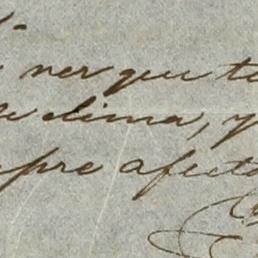 ver que te
de clima, y
mpre afecto